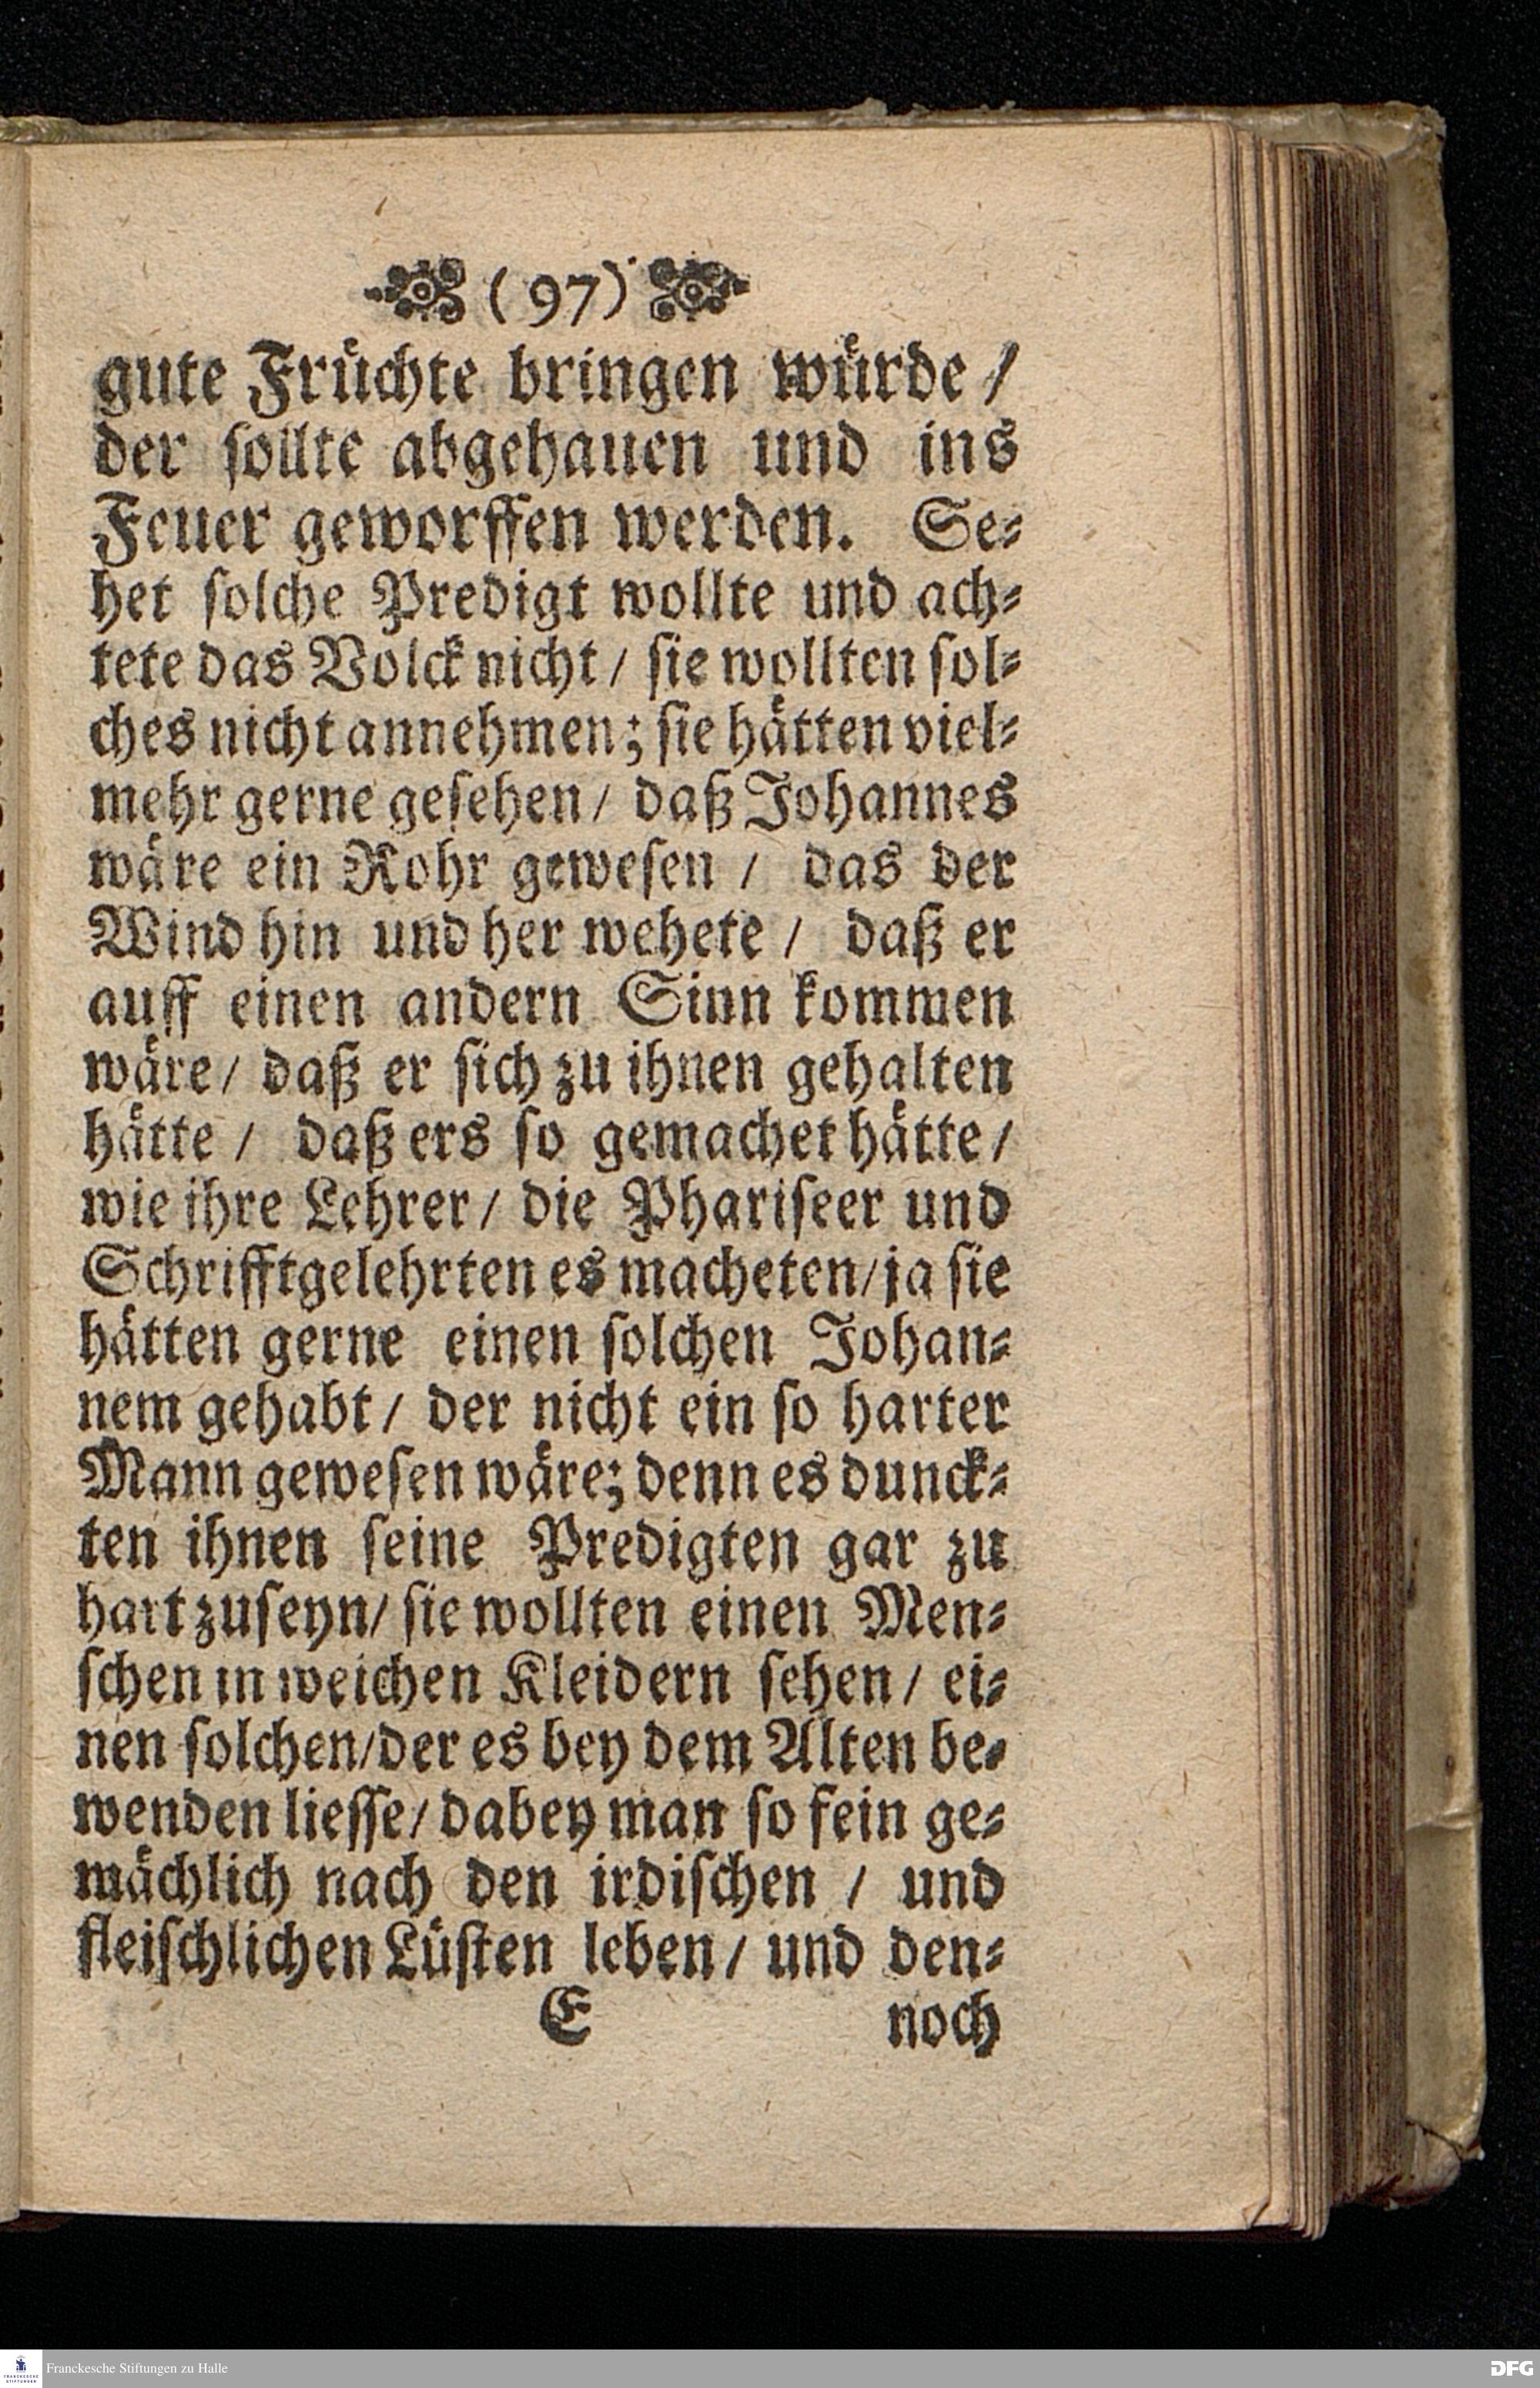 (97)
gute Früchte bringen würde /
der sollte abgehauen und ins
Feuer geworffen werden. Se-
het solche Predigt wollte und ach-
tete das Volck nicht / sie wollten sol-
ches nicht annehmen; sie hätten viel-
mehr gerne gesehen / daß Johannes
wäre ein Rohr gewesen / das der
Wind hin und her wehete / daß er
auff einen andern Sinn kommen
wäre / daß er sich zu ihnen gehalten
hätte / daß ers so gemachet hätte /
wie ihre Lehrer / die Phariseer und
Schrifftgelehrten es macheten / ja sie
hätten gerne einen solchen Johan-
nem gehabt / der nicht ein so harter
Mann gewesen wäre; denn es dunck-
ten ihnen seine Predigten gar zu
hart zuseyn / sie wollten einen Men-
schen in weichen Kleidern sehen / ei-
nen solchen / der es bey dem Alten be-
wenden liesse / dabey man so fein ge-
mächlich nach den irdischen / und
fleischlichen Lüsten leben / und den-
E noch
FRANCKESCHE STIFTUNGEN
Franckesche Stiftungen zu Halle
DFG